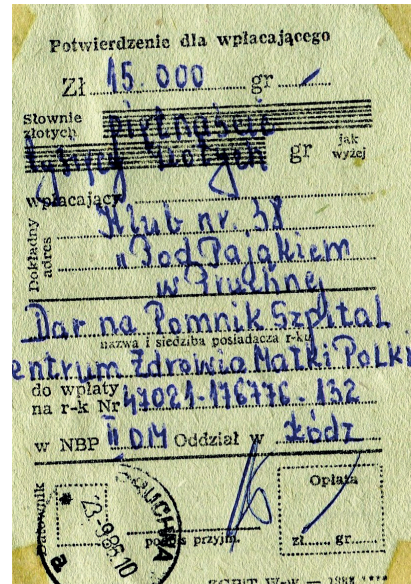 Potwierdzenie dla wpłacającego
Zł 15.000 gr
Słownie złotych piętnaście
tysięcy złotych gr jak wyżej
wpłacający
Dokładny adres
Klub nr. 38
"Pod Pająkiem
w Pruchnej
Dar na Pomnik Szpital
nazwa i siedziba posiadacza r-ku
entrum Zdrowia Matki Polki
do wpłaty
na r-k Nr 47021-176776-132
w NBP II OM Oddział w Łódź
Datownik
PRUCHNA
23.9.85.10
a
podpis przyjm.
Opłata
zł gr.